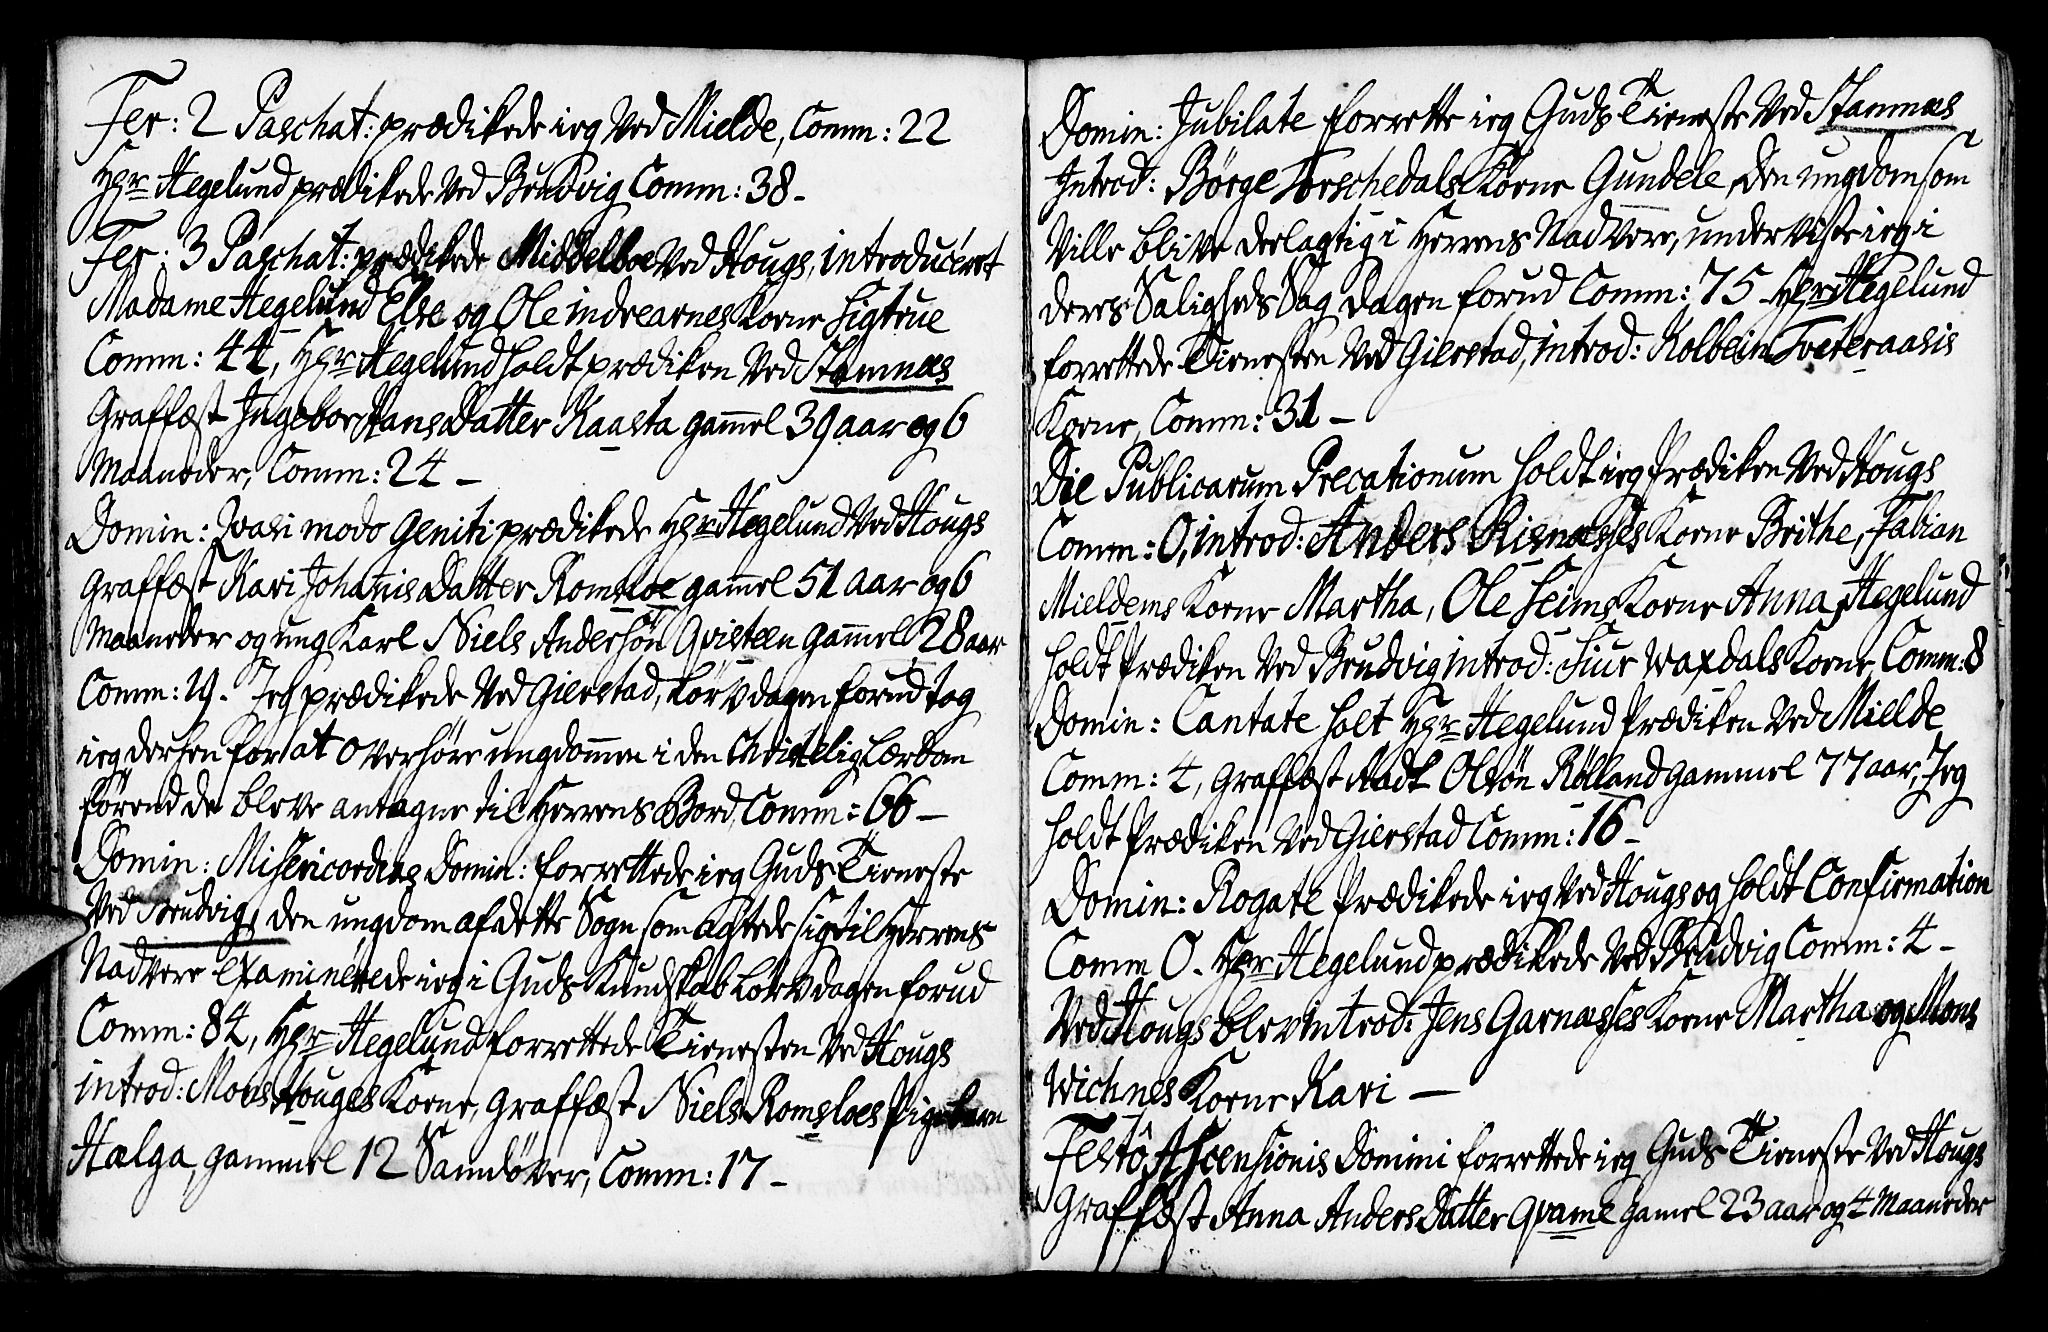 Fer: 2 Paschat: prædikede ieg Ved Mielde, Comm: 22
Hr Hegelund prædikede Ved Brudvig Comm: 38 -
Fer: 3 Paschat: prædikede Middelboe Ved Hougs, introduceret
Madame Hegelund Else og Ole indrearnes Kone Sigtrue
Comm: 44, Hr Hegelund holdt prædiken Ved Stamnæs
Graffæst Ingebor Hans Datter Kaasta gam̅el 39 aar og 6
Maaneder, Comm: 24 -
Domin: Qvasi modo Geniti prædikede Hr Hegelund Ved Hougs
Graffæst Kari Johan̅is Datter Romsloe gam̅el 51 aar og 6
Maaneder og ung Karl Niels Andersøn Qvisteen gam̅el 28 aar
Comm: 4. Jeg prædikede Ved Gierstad, Løvdagen forud tog
ieg derhen for at overhøre ungdom̅en i den Christelig Lærdom
førend de bleve antagne til Herrens Bord, Comm: 66 -
Domin: Misericordias Domin: forrettede ieg Guds Tieneste
Ved Brudvig, den ungdom af dette Sogn som agtede sig til Herrens
Nadvere examinerede ieg i Guds Kundskab Løvdagen forud
Comm: 84, Hr Hegelund forrettede Tienesten Ved Hougs
introd: Mons Houges Kone, Graffæst Niels Romsloes Pigebarn
Hælga, gammel 12 Samdøver, Comm: 17 -
Domin: Jubilate forrette ieg Guds Tieneste Ved Stamnæs
Introd: Børge Torschedals Kone Gundele, den ungdom som
Ville blive deelagtig i Herrens Nadvere, underviste ieg i
deres Saligheds Sag Dagen forud Comm: 75 Hr Hegelund
forrettede Tienesten Ved Gierstad, introd: Kolbein Tveteraasis
Kone, Comm: 31 -
Die Publicarum Precationum holdt ieg Prædiken Ved Hougs
Comm: 0, introd: Anders Rienæsses Kone Brithe, Fabian
Mieldems Kone Martha, Ole Seims Kone Anna, Hegelund
holdt Prædiken Ved Brudvig introd: Siur Waxdals Kone, Comm: 8
Domin: Cantate holt Hr Hegelund Prædiken Ved Mielde
Comm: 4, Graffæst Aadt Olsøn Rølland gammel 77 aar, Jeg
holdt Prædiken Ved Gierstad Comm: 16 -
Domin: Rogate Prædikede ieg Ved Hougs og holdt Confirmation
Comm 0. Hr Hegelund prædikede Ved Brudvig Comm: 4 -
Ved Hougs blev introd: Jens Garnæsses Kone Martha og Mons
Wichnes Kone Kari -
Festô Ascensionis Domini forrettede ieg Guds Tieneste Ved Hougs
Graffæst Anna Anders Datter Qvamel gamel 23 aar og 4 Maaneder